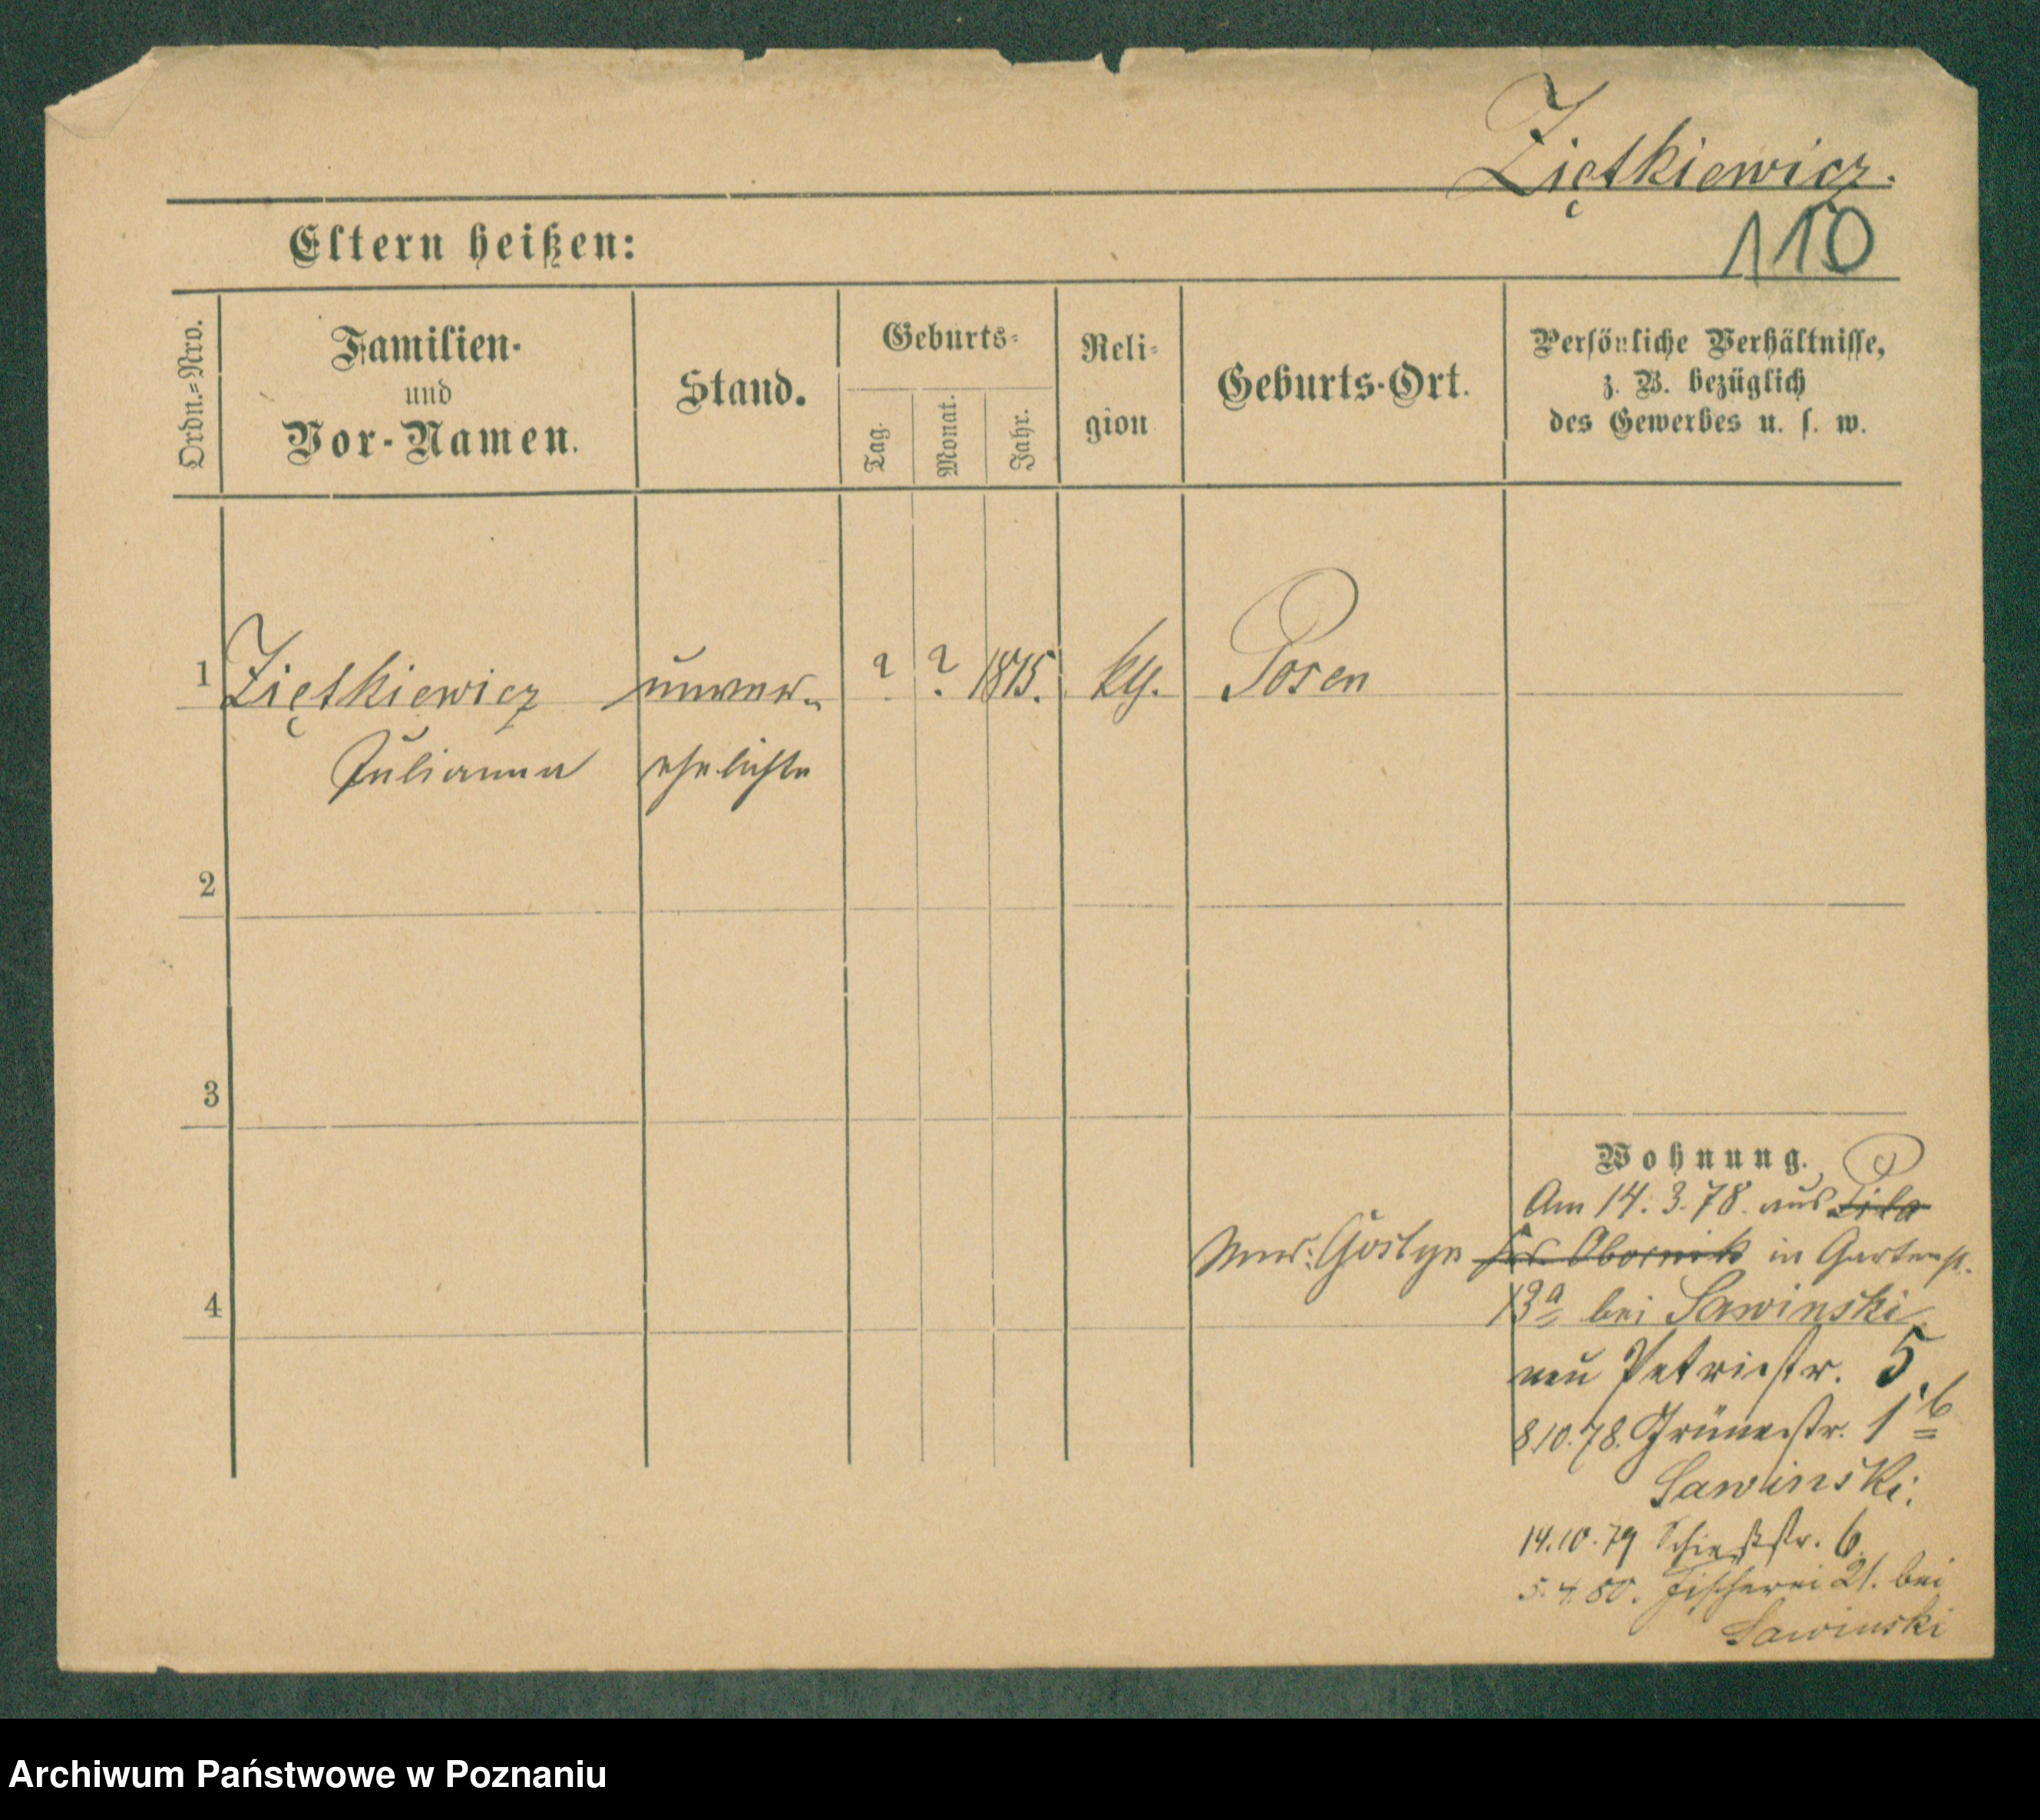 Ziętkiewicz.
110
Eltern heißen:
Ordn.=Nro.
Familien-
und
Vor-Namen.
Stand.
Geburts-
Tag.
Monat.
Jahr.
Reli-
gion
Geburts-Ort.
Persönliche Verhältnisse,
z. B. bezüglich
des Gewerbes u. s. w.
1 Ziętkiewicz unver- ? ? 1815. kth. Posen
Julianna ehelichte
2
3
Wohnung.
Am 14. 3. 78. aus Pila
Gostyn Obornik in Gartenstr.
4
13a bei Sawinski
neu Petristr. 5
8.10.78. Grünestr. 1b
Sawinski.
14.10.79 Schießstr. 6.
5.4.80. Fischerei 21. bei
Sawinski
Archiwum Państwowe w Poznaniu